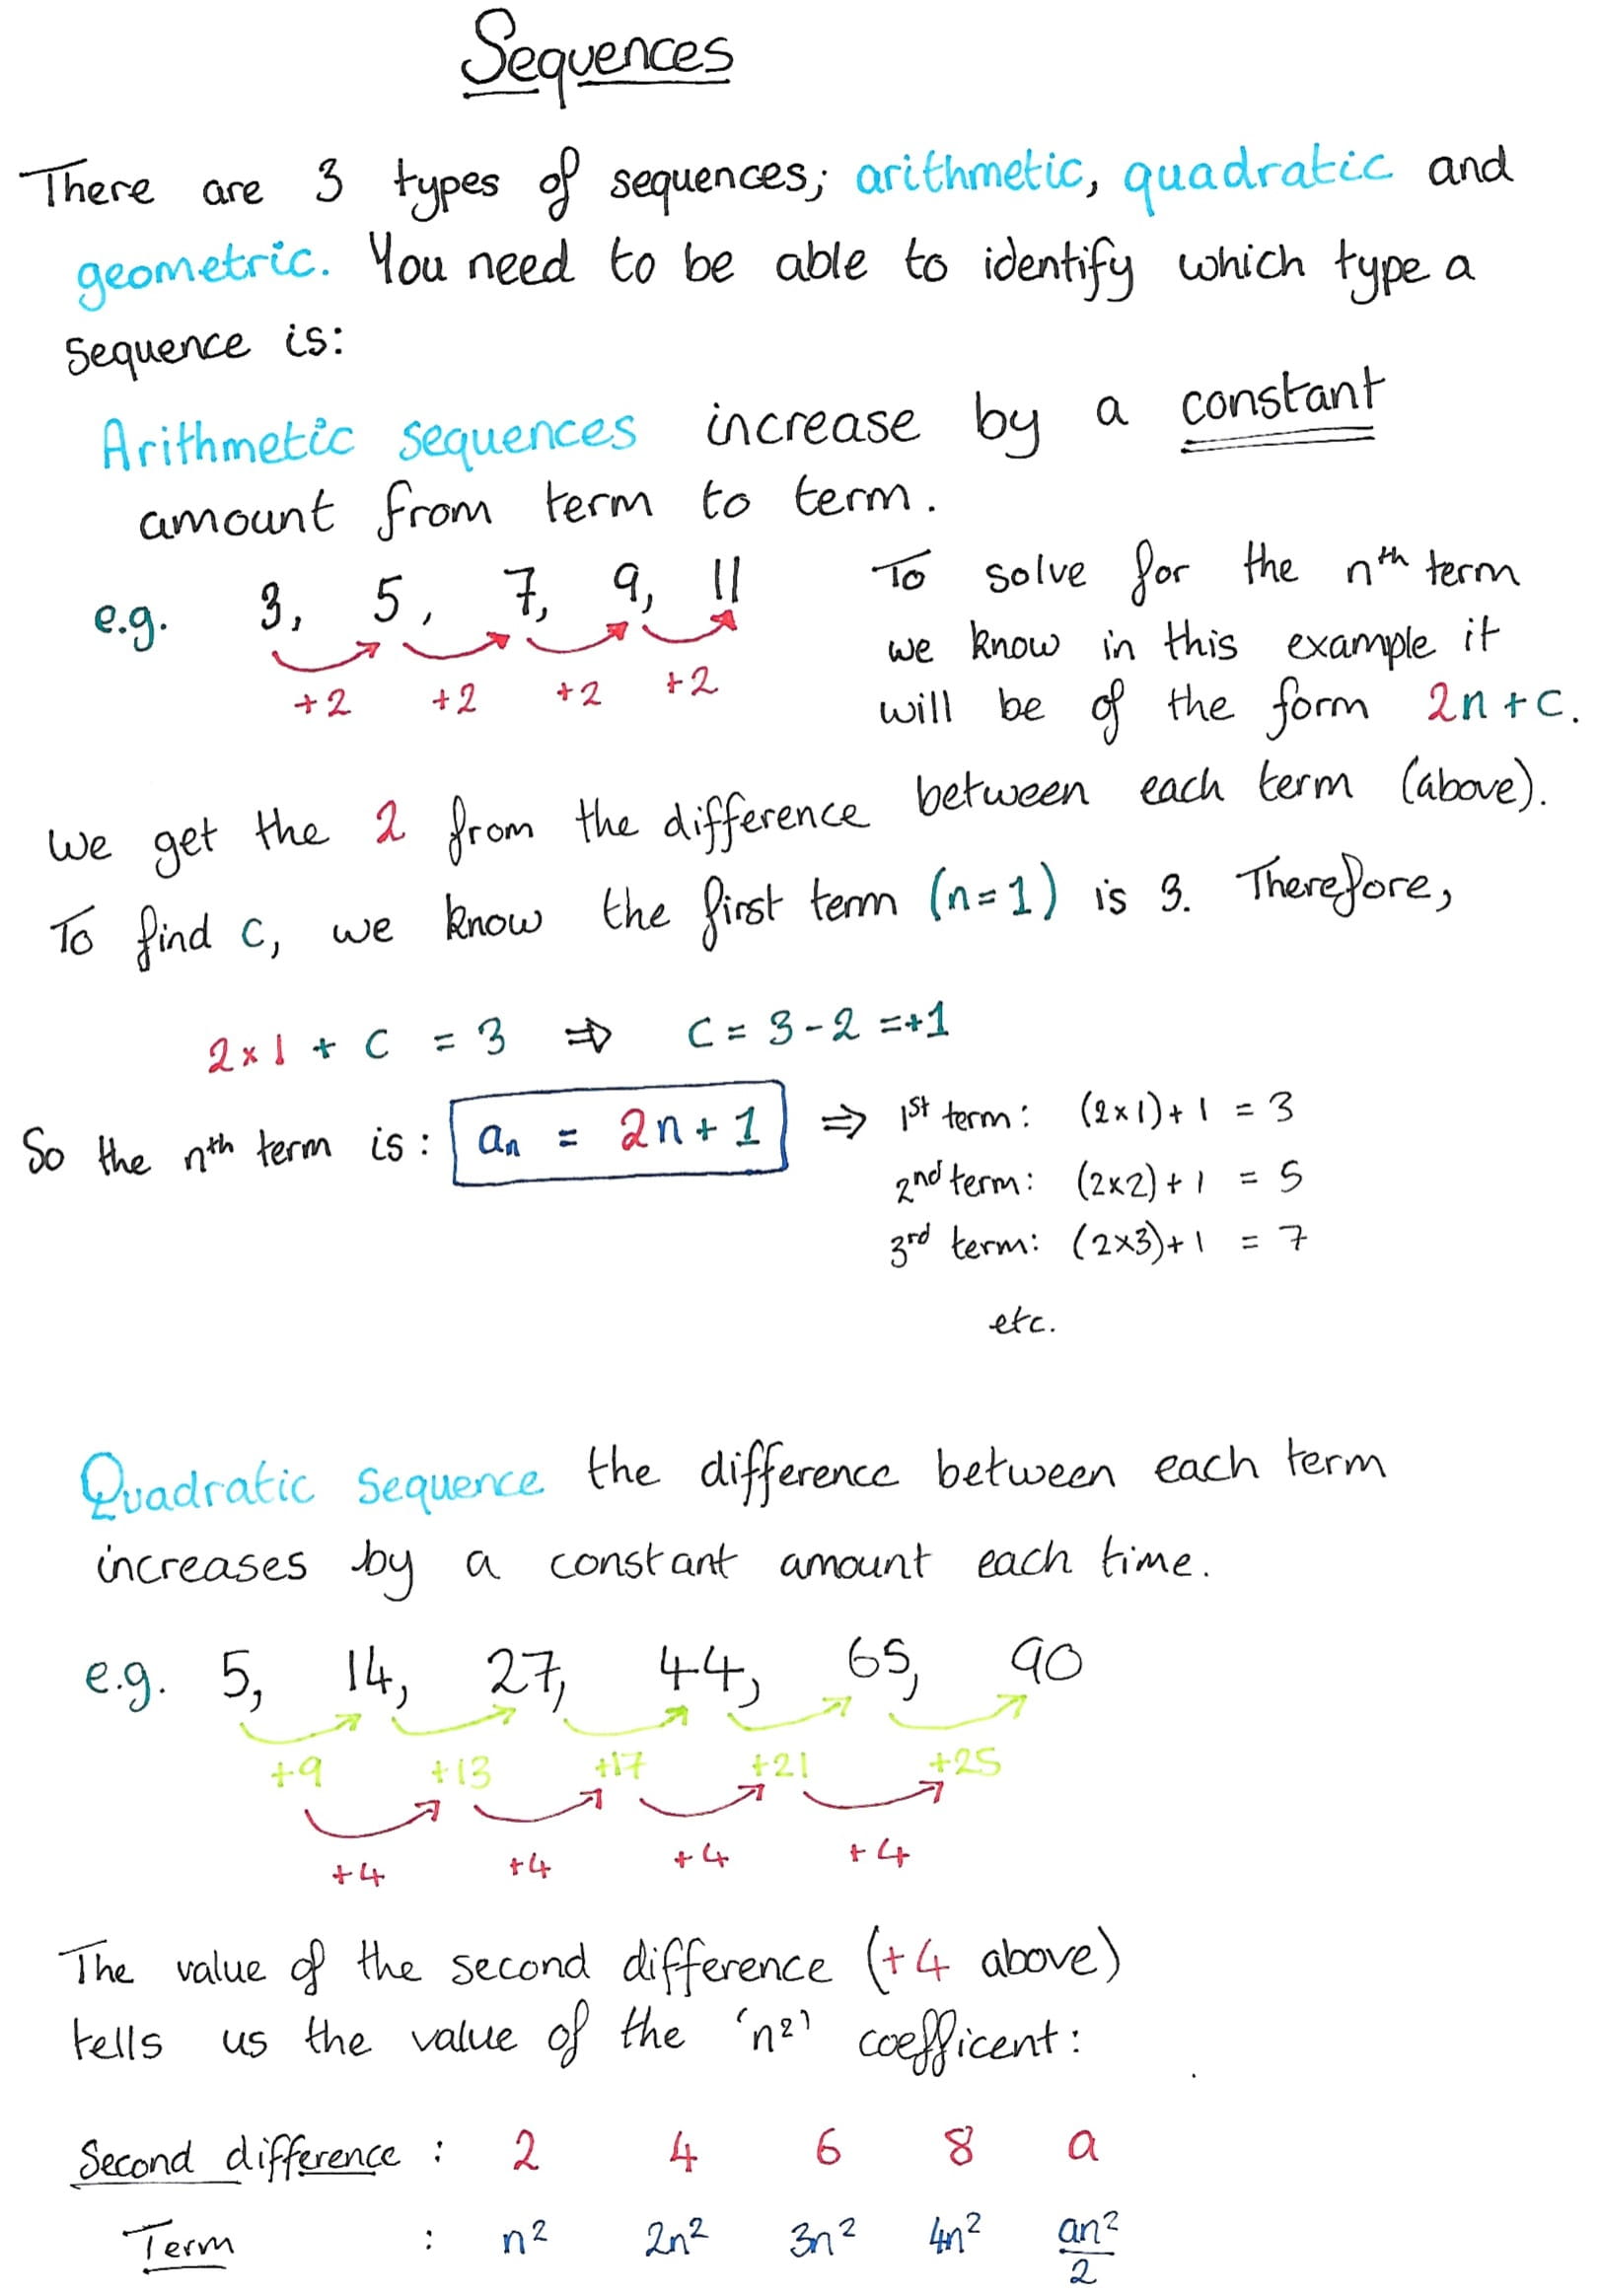 Sequences
There are 3 types of sequences; arithmetic, quadratic and
geometric. You need to be able to identify which type a
sequence is:
Arithmetic sequences increase by a constant
amount from term to term.
e.g. 3, 5, 7, 9, 11
+2 +2 +2 +2
To solve for the nth term
we know in this example it
will be of the form 2n + c.
We get the 2 from the difference between each term (above).
To find c, we know the first term (n=1) is 3. Therefore,
2×1 + c = 3 ⇒ c = 3 - 2 = +1
So the nth term is: an = 2n + 1 ⇒ 1st term: (2×1) + 1 = 3
2nd term: (2×2) + 1 = 5
3rd term: (2×3) + 1 = 7
etc.
Quadratic sequence the difference between each term
increases by a constant amount each time.
e.g. 5, 14, 27, 44, 65, 90
+9 +13 +17 +21 +25
+4 +4 +4 +4
The value of the second difference (+4 above)
tells us the value of the 'n²' coefficent:
Second difference : 2 4 6 8 a
Term : n² 2n² 3n² 4n² an²/2